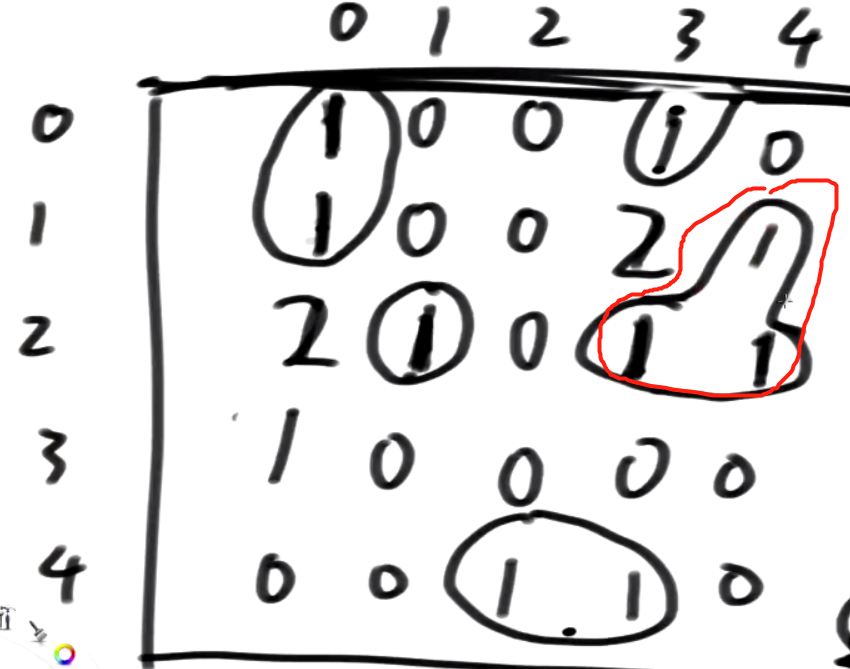 0 1 2 3 4
0 1 0 0 1 0
1 1 0 0 2 1
2 2 1 0 1 1
3 1 0 0 0 0
4 0 0 1 1 0